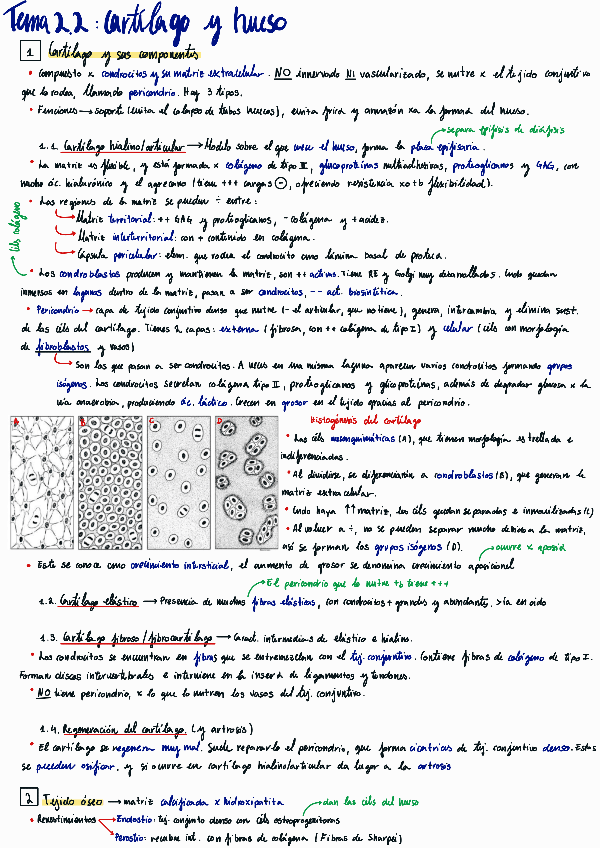 Tema 22: Cartílago y hueso
1 Cartílago y sus componentes
• Compuesto x condrocitos y su matriz extracelular. NO innervado NI vascularizado, se nutre x el tejido conjuntivo
que lo rodea, llamado pericondrio. Hay 3 tipos.
• Funciones → soporte (evita el colapso de tubos huecos), evita fricc y armazón xa la formac del hueso.
→ separa epífisis de diáfisis
1.1. Cartílago hialino/articular → Modelo sobre el que crece el hueso, forma la placa epifisaria.
• La matriz es flexible, y está formada x colágeno de tipo II, glucoproteínas multiadhesivas, proteoglicanos y GAG, con
mucho ác. hialurónico y el agrecano (tiene +++ cargas ⊖, ofreciendo resistencia xo tb flexibilidad).
• Las regiones de la matriz se pueden ÷ entre:
Matriz territorial: ++ GAG y proteoglicanos, - colágeno y + acidez.
Matriz interterritorial: con + contenido en colágeno.
Cápsula pericelular: elem. que rodea el condrocito como lámina basal de protecc.
• Los condroblastos producen y mantienen la matriz, son ++ activos. Tiene RE y Golgi muy desarrollados. Cndo quedan
inmersos en lagunas dentro de la matriz, pasan a ser condrocitos, -- act. biosintética.
• Pericondrio → capa de tejido conjuntivo denso que nutre (- el articular, que no tiene), genera, intercambia y elimina sust.
de las céls del cartílago. Tienes 2 capas: externa (fibrosa, con ++ colágeno de tipo I) y celular (céls con morfología
de fibroblastos y vasos)
→ Son los que pasan a ser condrocitos. A veces en una misma laguna aparecen varios condrocitos formando grupos
isógenos. Los condrocitos secretan colágeno tipo II, proteoglicanos y glicoproteínas, además de degradar glucosa x la
vía anaerobia, produciendo ác. láctico. Crecen en grosor en el tejido gracias al pericondrio.
A B C D
Histogénesis del cartílago
• Las céls mesenquimáticas (A), que tienen morfología estrellada e
indiferenciadas.
• Al dividirse, se diferenciarán a condroblastos (B), que generan la
matriz extracelular.
• Cndo haya ↑↑ matriz, las céls quedan separadas e inmovilizadas (C)
• Al volver a ÷, no se pueden separar mucho debido a la matriz,
así se forman los grupos isógenos (D).
→ ocurre x aposic
• Este se conoce como crecimiento intersticial, el aumento de grosor se denomina crecimiento aposicional
→ El pericondrio que lo nutre tb tiene +++
1.2. Cartílago elástico → Presencia de muchas fibras elásticas, con condrocitos + grandes y abundantes. >ía en oído
1.3. Cartílago fibroso/fibrocartílago → Caract. intermedias de elástico e hialino.
• Los condrocitos se encuentran en fibras que se entremezclan con el tej. conjuntivo. Contiene fibras de colágeno de tipo I.
Forman discos intervertebrales e interviene en la inserc de ligamentos y tendones.
• NO tiene pericondrio, x lo que lo nutren los vasos del tej. conjuntivo.
1.4. Regeneración del cartílago. (y artrosis)
• El cartílago se regenera muy mal. Suele repararlo el pericondrio, que forma cicatrices de tej. conjuntivo denso. Estas
se pueden osificar, y si ocurre en cartílago hialino/articular da lugar a la artrosis
2 Tejido óseo → matriz calcificada x hidroxipatita
→ dan las céls del hueso
• Revestimientos → Endostio: tej. conjunto denso con céls osteoprogenitoras
Periostio: recubre int. con fibras de colágeno (Fibras de Sharpei)